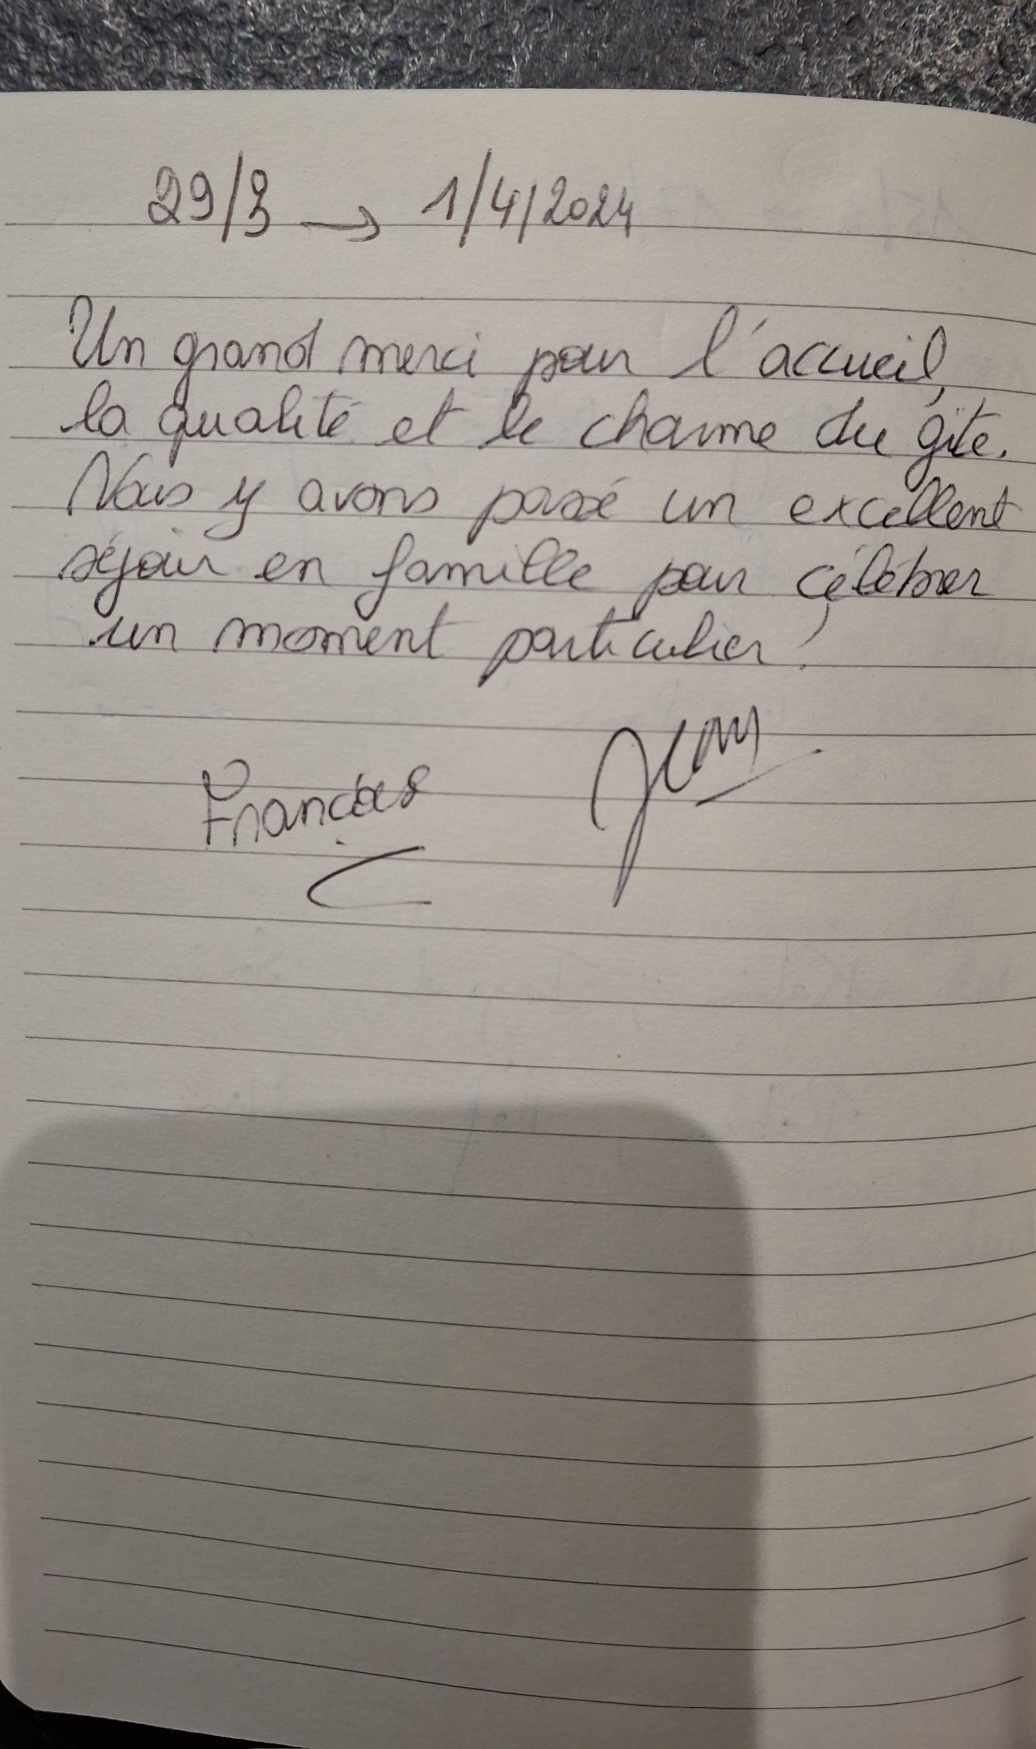 29/3 → 1/4/2024
Un grand merci pour l'accueil,
la qualité et le charme du gîte.
Nous y avons passé un excellent
séjour en famille pour célébrer
un moment particulier !